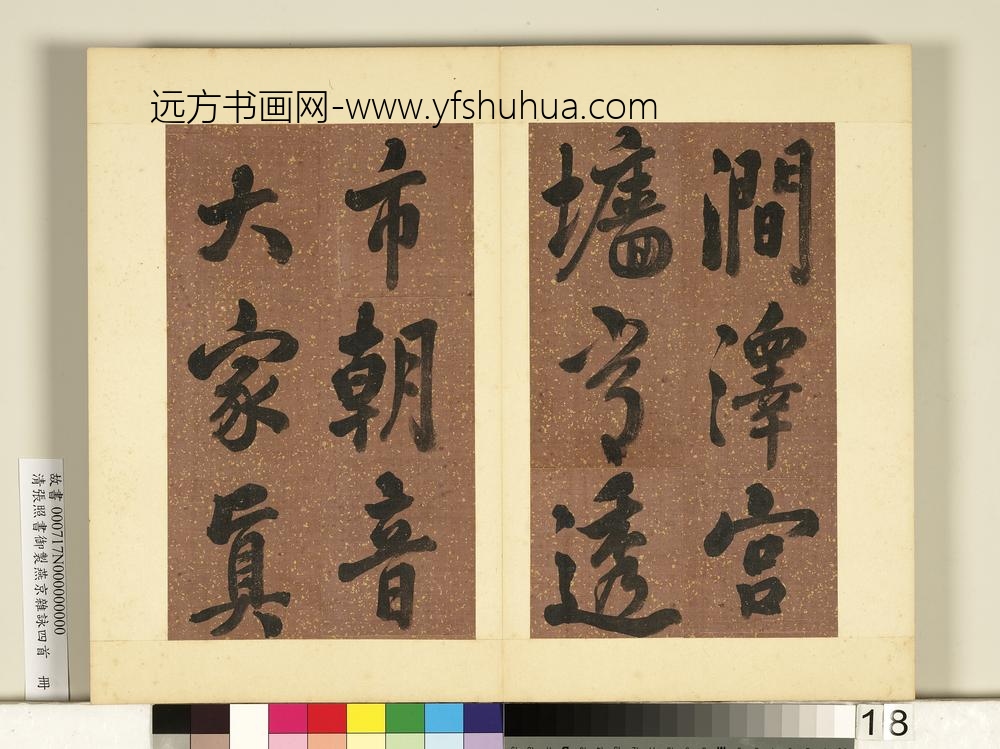 远方书画网-www.yfshuhua.com
澗澤宮
墻亨透
市朝音
大家真
故書 000717N000000000
清張照書御製燕京雜詠四首 冊
18